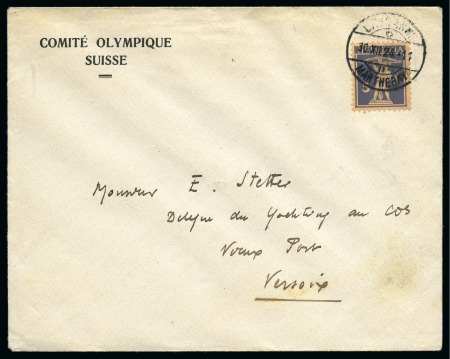 COMITÉ OLYMPIQUE
SUISSE
LAUSANNE
10.XII.24
5
Monsieur E.
Délégué du Yachting au COS
Vieux Port
Versoix